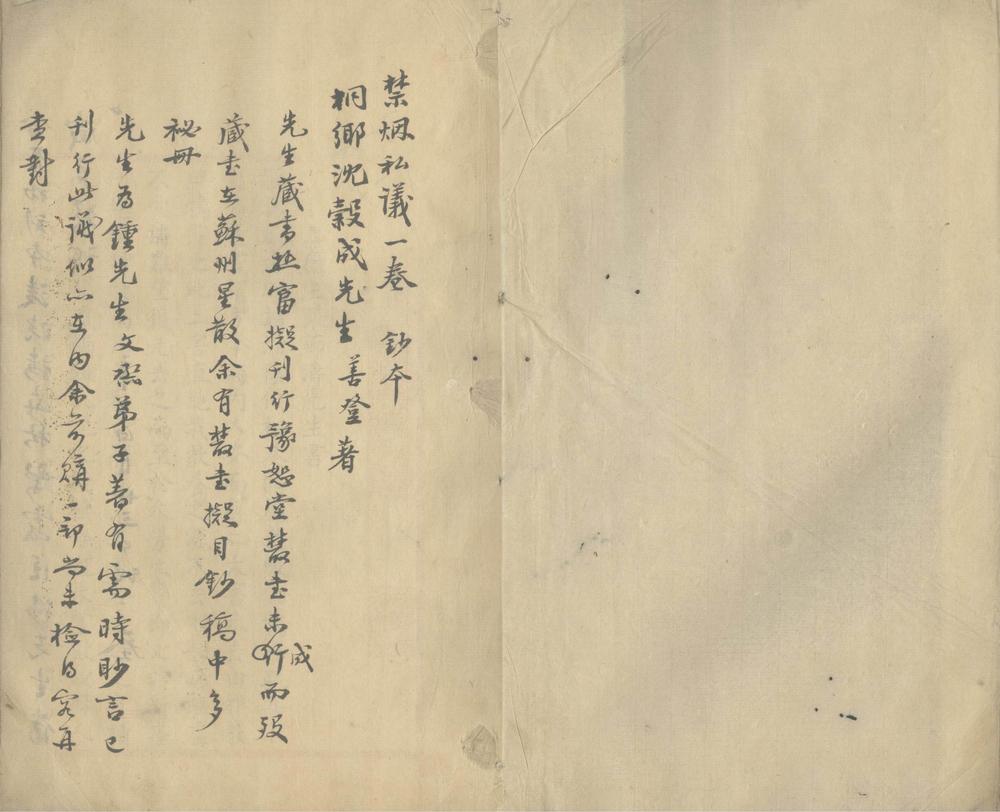 禁烟私議一卷　鈔本
桐鄉沈穀成先生善登著
先生藏書極富擬刊行豫恕堂叢書未成而歿
藏書在蘇州星散余有叢書擬目鈔稿中多
祕冊
先生為鍾先生文烝弟子著有需時眇言已
刊行此議似亦在內余前購一部尚未檢得容再
查對